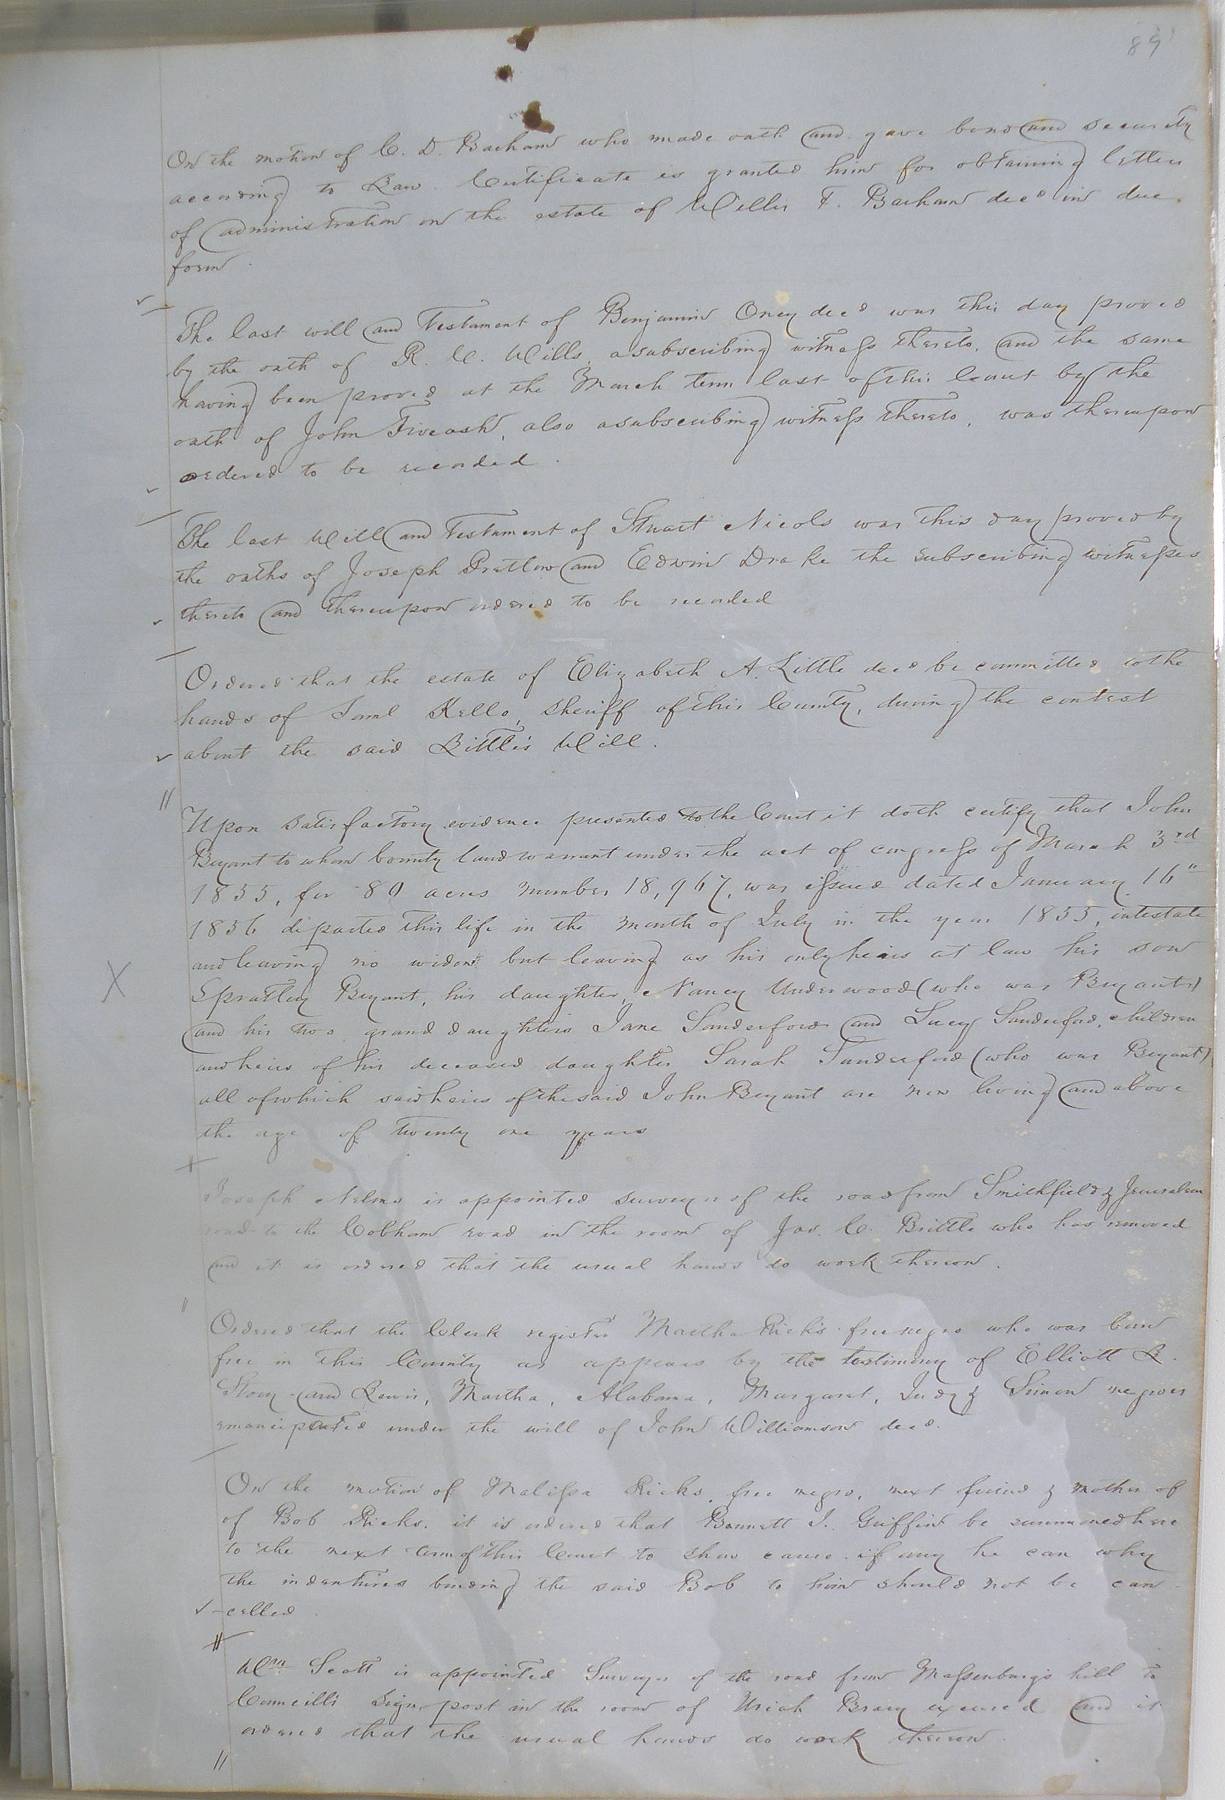 89
On the motion of C. D. Barham who made oath and gave bond and security
according to Law Certificate is granted him for obtaining letters
of administration on the estate of Willis F. Barham decd in due
form.
The last will and Testament of Benjamin Oney decd was this day proved
by the oath of R. C. Wills, a subscribing witness thereto, and the same
having been proved at the March term last of this Court by the
oath of John Fiveash, also a subscribing witness thereto, was thereupon
ordered to be recorded.
The last Will and Testament of Stuart Nicols was this day proved by
the oaths of Joseph Pretlow and Edwin Drake the subscribing witnesses
thereto and thereupon ordered to be recorded
Ordered that the estate of Elizabeth A. Little decd be committed to the
hands of Saml Kello, Sheriff of this County, during the contest
about the said Little's Will.
Upon satisfactory evidence presented to the Court it doth certify that John
Bryant to whom bounty land warrant under the act of congress of March 3rd
1855, for 80 acres number 18,967, was issued dated January 16th
1856 departed this life in the month of July in the year 1855, intestate
and leaving no widow but leaving as his only heirs at law his son
Spratley Bryant, his daughter, Nancy Underwood (who was Bryant)
and his two grand daughters Jane Sanderford and Lucy Sanderford, children
and heirs of his deceased daughter Sarah Sanderford (who was Bryant)
all of which said heirs of the said John Bryant are now living and above
the age of twenty one years
Joseph Nelms is appointed surveyor of the road from Smithfield & Jerusalem
road to the Cobham road in the room of Jas. C. Brittle who has removed
and it is ordered that the usual hands do work thereon.
Ordered that the Clerk register Martha Ricks free negro who was born
free in this County as appears by the testimony of Elliott L.
Story and Lewis, Martha, Alabama, Margaret, Judy & Simon negroes
emancipated under the will of John Williamson decd.
On the motion of Malissa Ricks, free negro, next friend & mother of
of Bob Ricks, it is ordered that Bennett J. Griffin be summoned here
to the next term of this Court to show cause if any he can why
the indentures binding the said Bob to him should not be can
-celled.
Wm Scott is appointed Surveyor of the road from Massenburg's hill to
Councill's Sign post in the room of Uriah Braxy excused and it
ordered that the usual hands do work thereon.